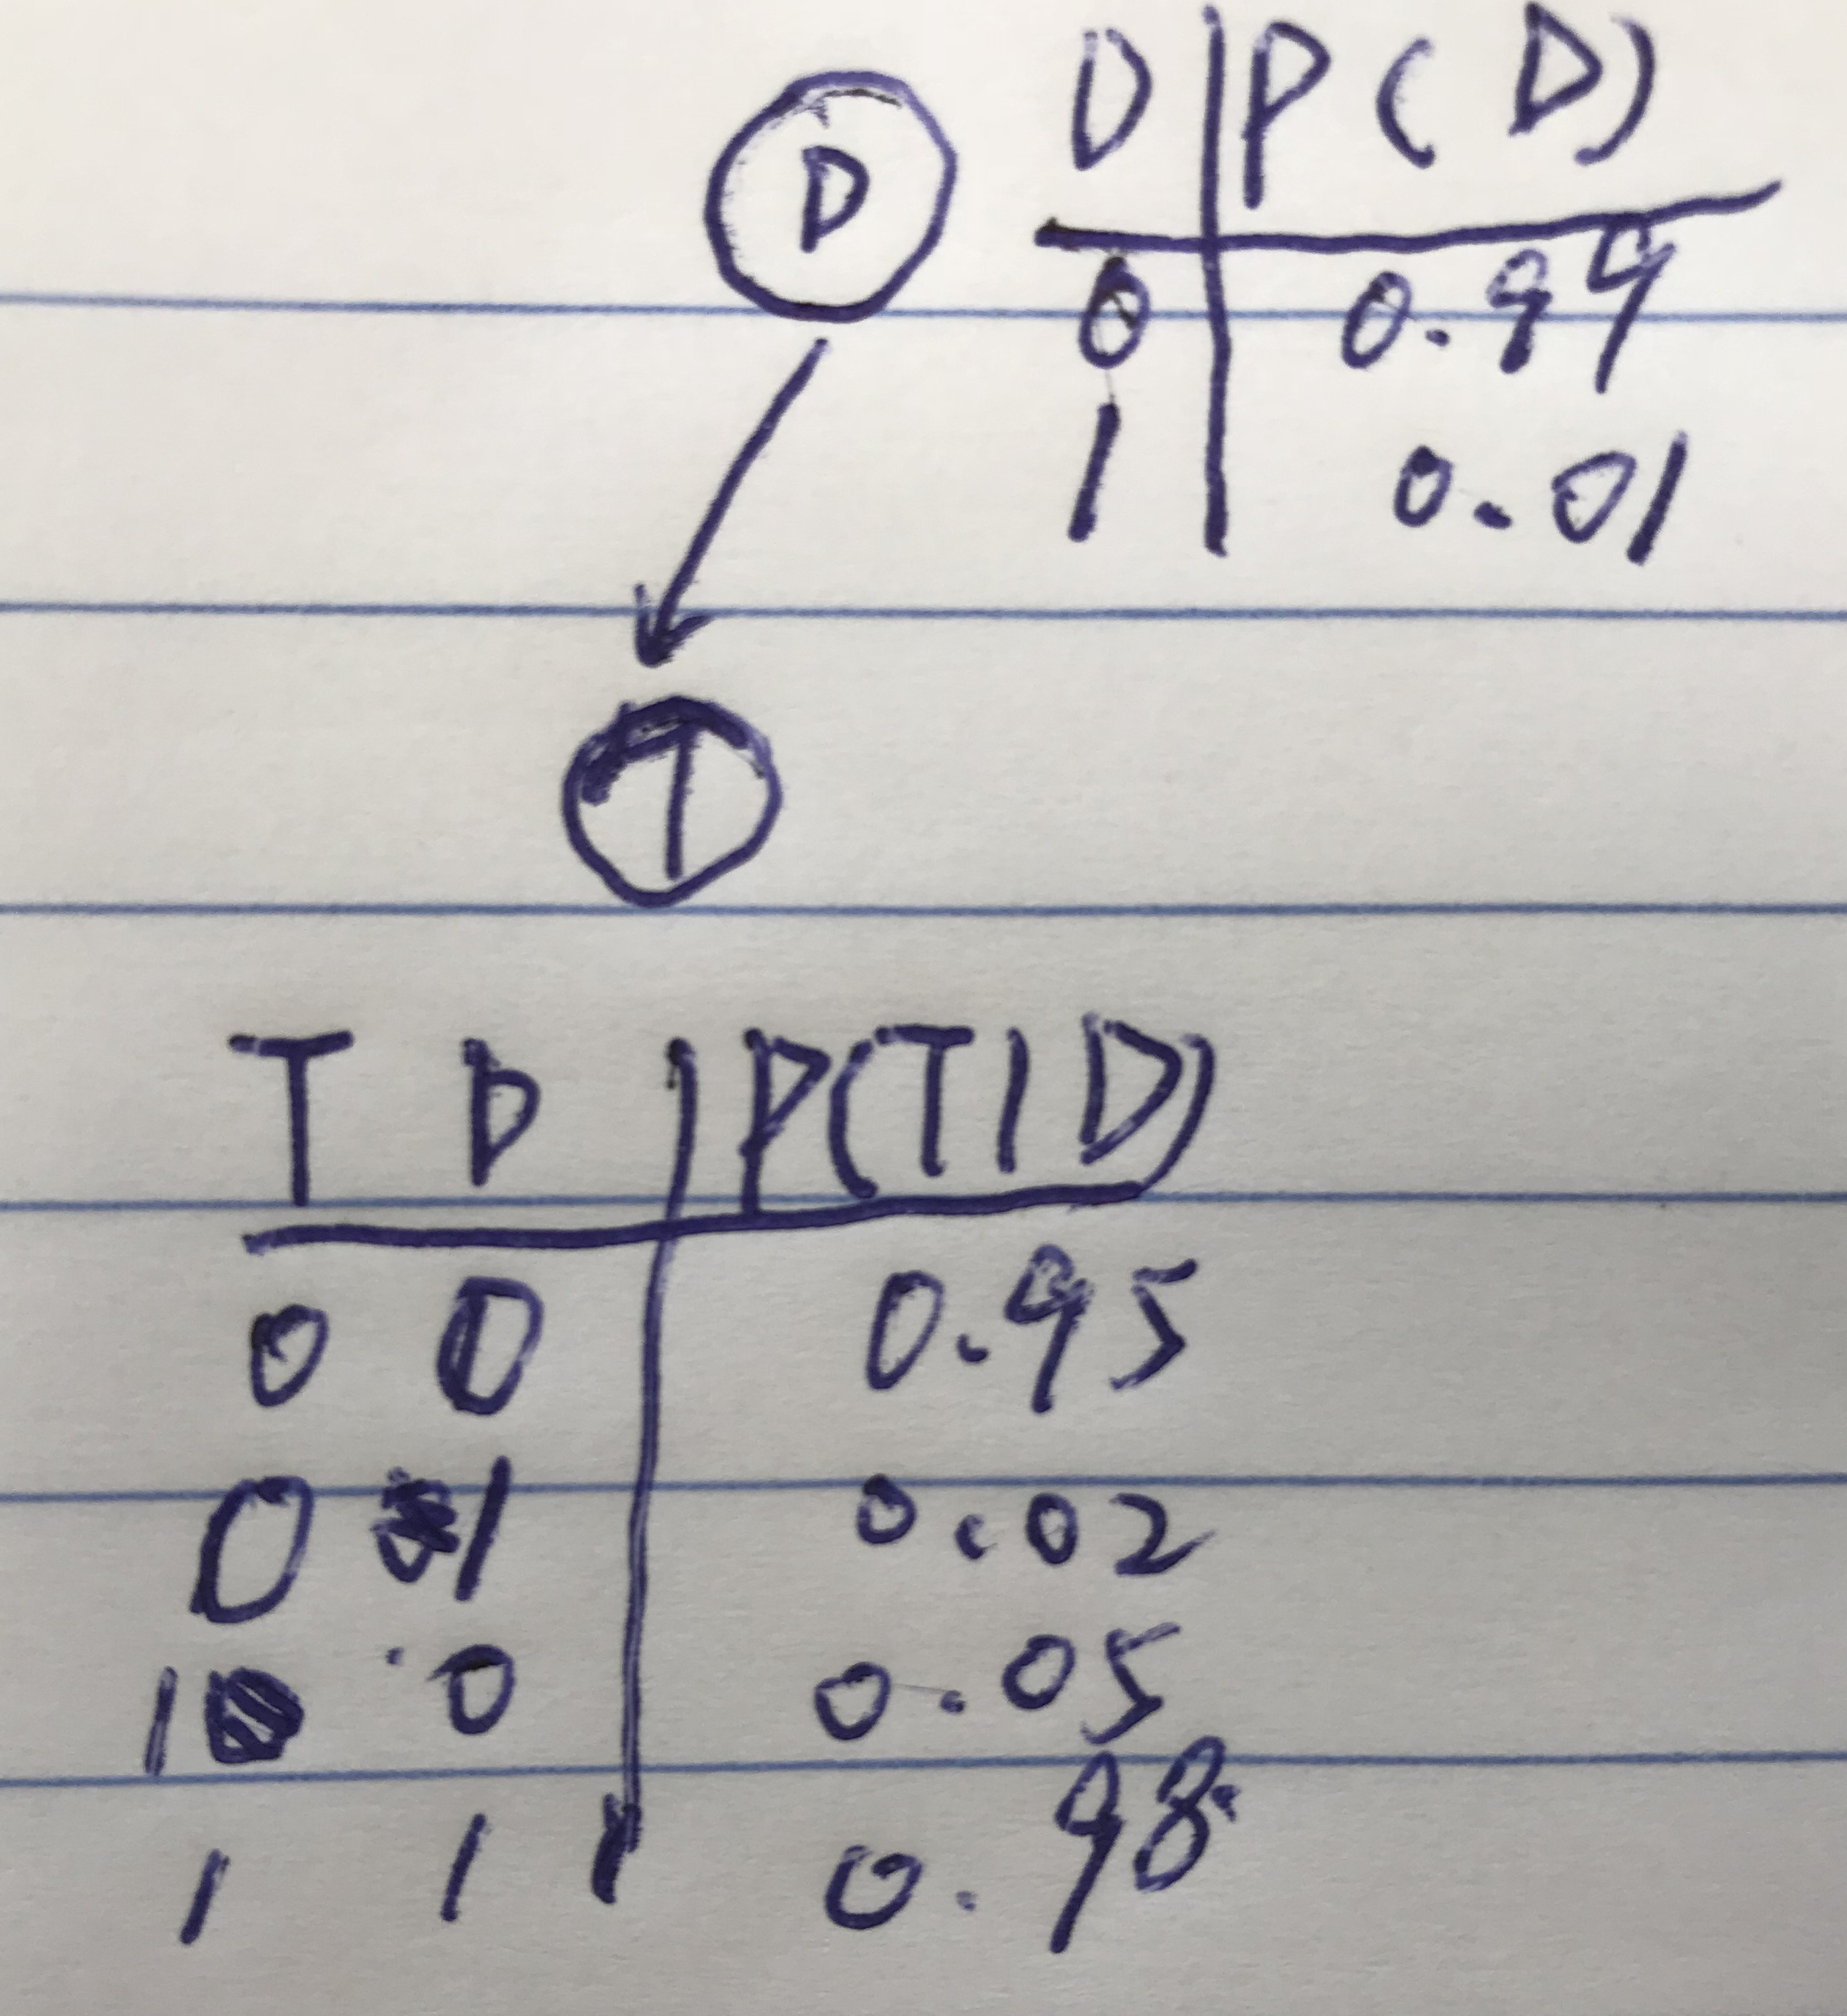 D P(D)
D
0 0.99
1 0.01
T
T D P(T|D)
0 0 0.95
0 1 0.02
1 0 0.05
1 1 0.98